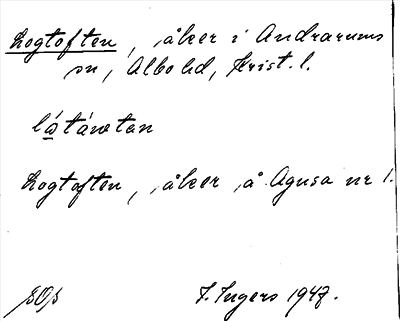 Logtoften, åker i Andrarums
sn, Albo hd, Krist. l.
Logtoften, åker å Agusa nr 1.
I. Ingers 1947.